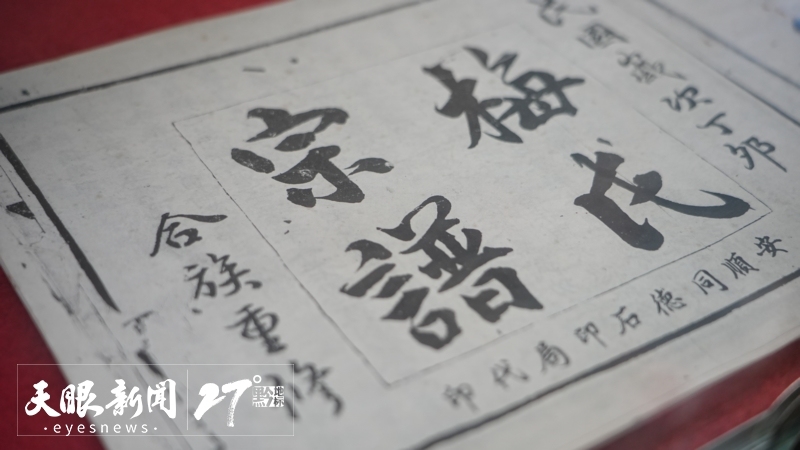 民國歲次丁卯
梅氏
宗譜
合族重修
安順同德石印局代印
天眼新闻
·eyesnews·
27°